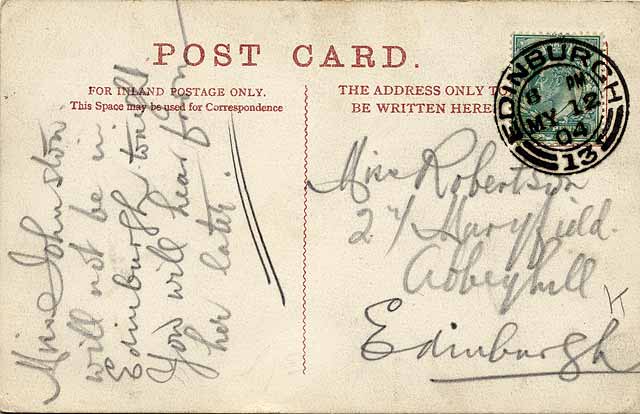 POST CARD.
FOR INLAND POSTAGE ONLY.
This Space may be used for Correspondence
THE ADDRESS ONLY T
BE WRITTEN HERE
EDINBURGH
8 PM
MY 12
04
13
Miss Johnston
will not be in
Edinburgh tonight
You will hear from
her later.
Miss Robertson
24 Maryfield.
Abbeyhill
Edinburgh